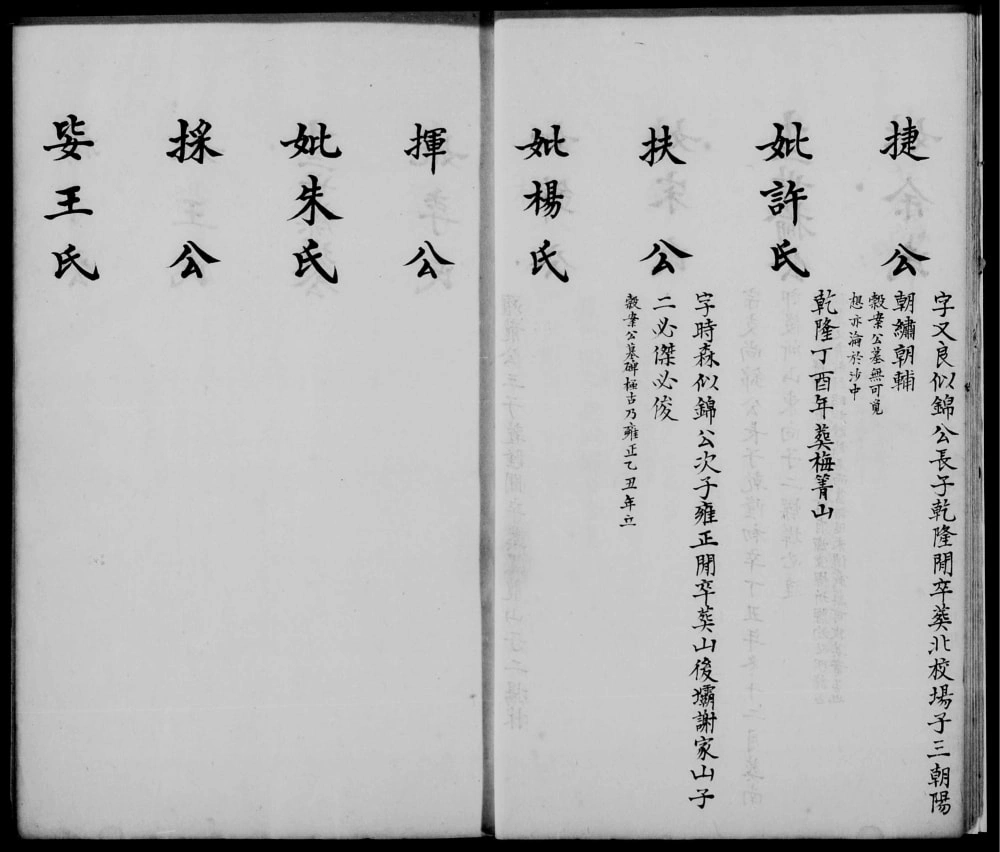 捷公
字又良似錦公長子乾隆閒卒葬北校塲子三朝陽
朝繡朝輔
穀業公墓無可覓
想亦淪於沙中
妣許氏
乾隆丁酉年葬梅箐山
扶公
字時森似錦公次子雍正閒卒葬山後壩謝家山子
二必傑必俊
穀業公墓碑極古乃雍正乙丑年立
妣楊氏
揮公
妣朱氏
採公
妣王氏